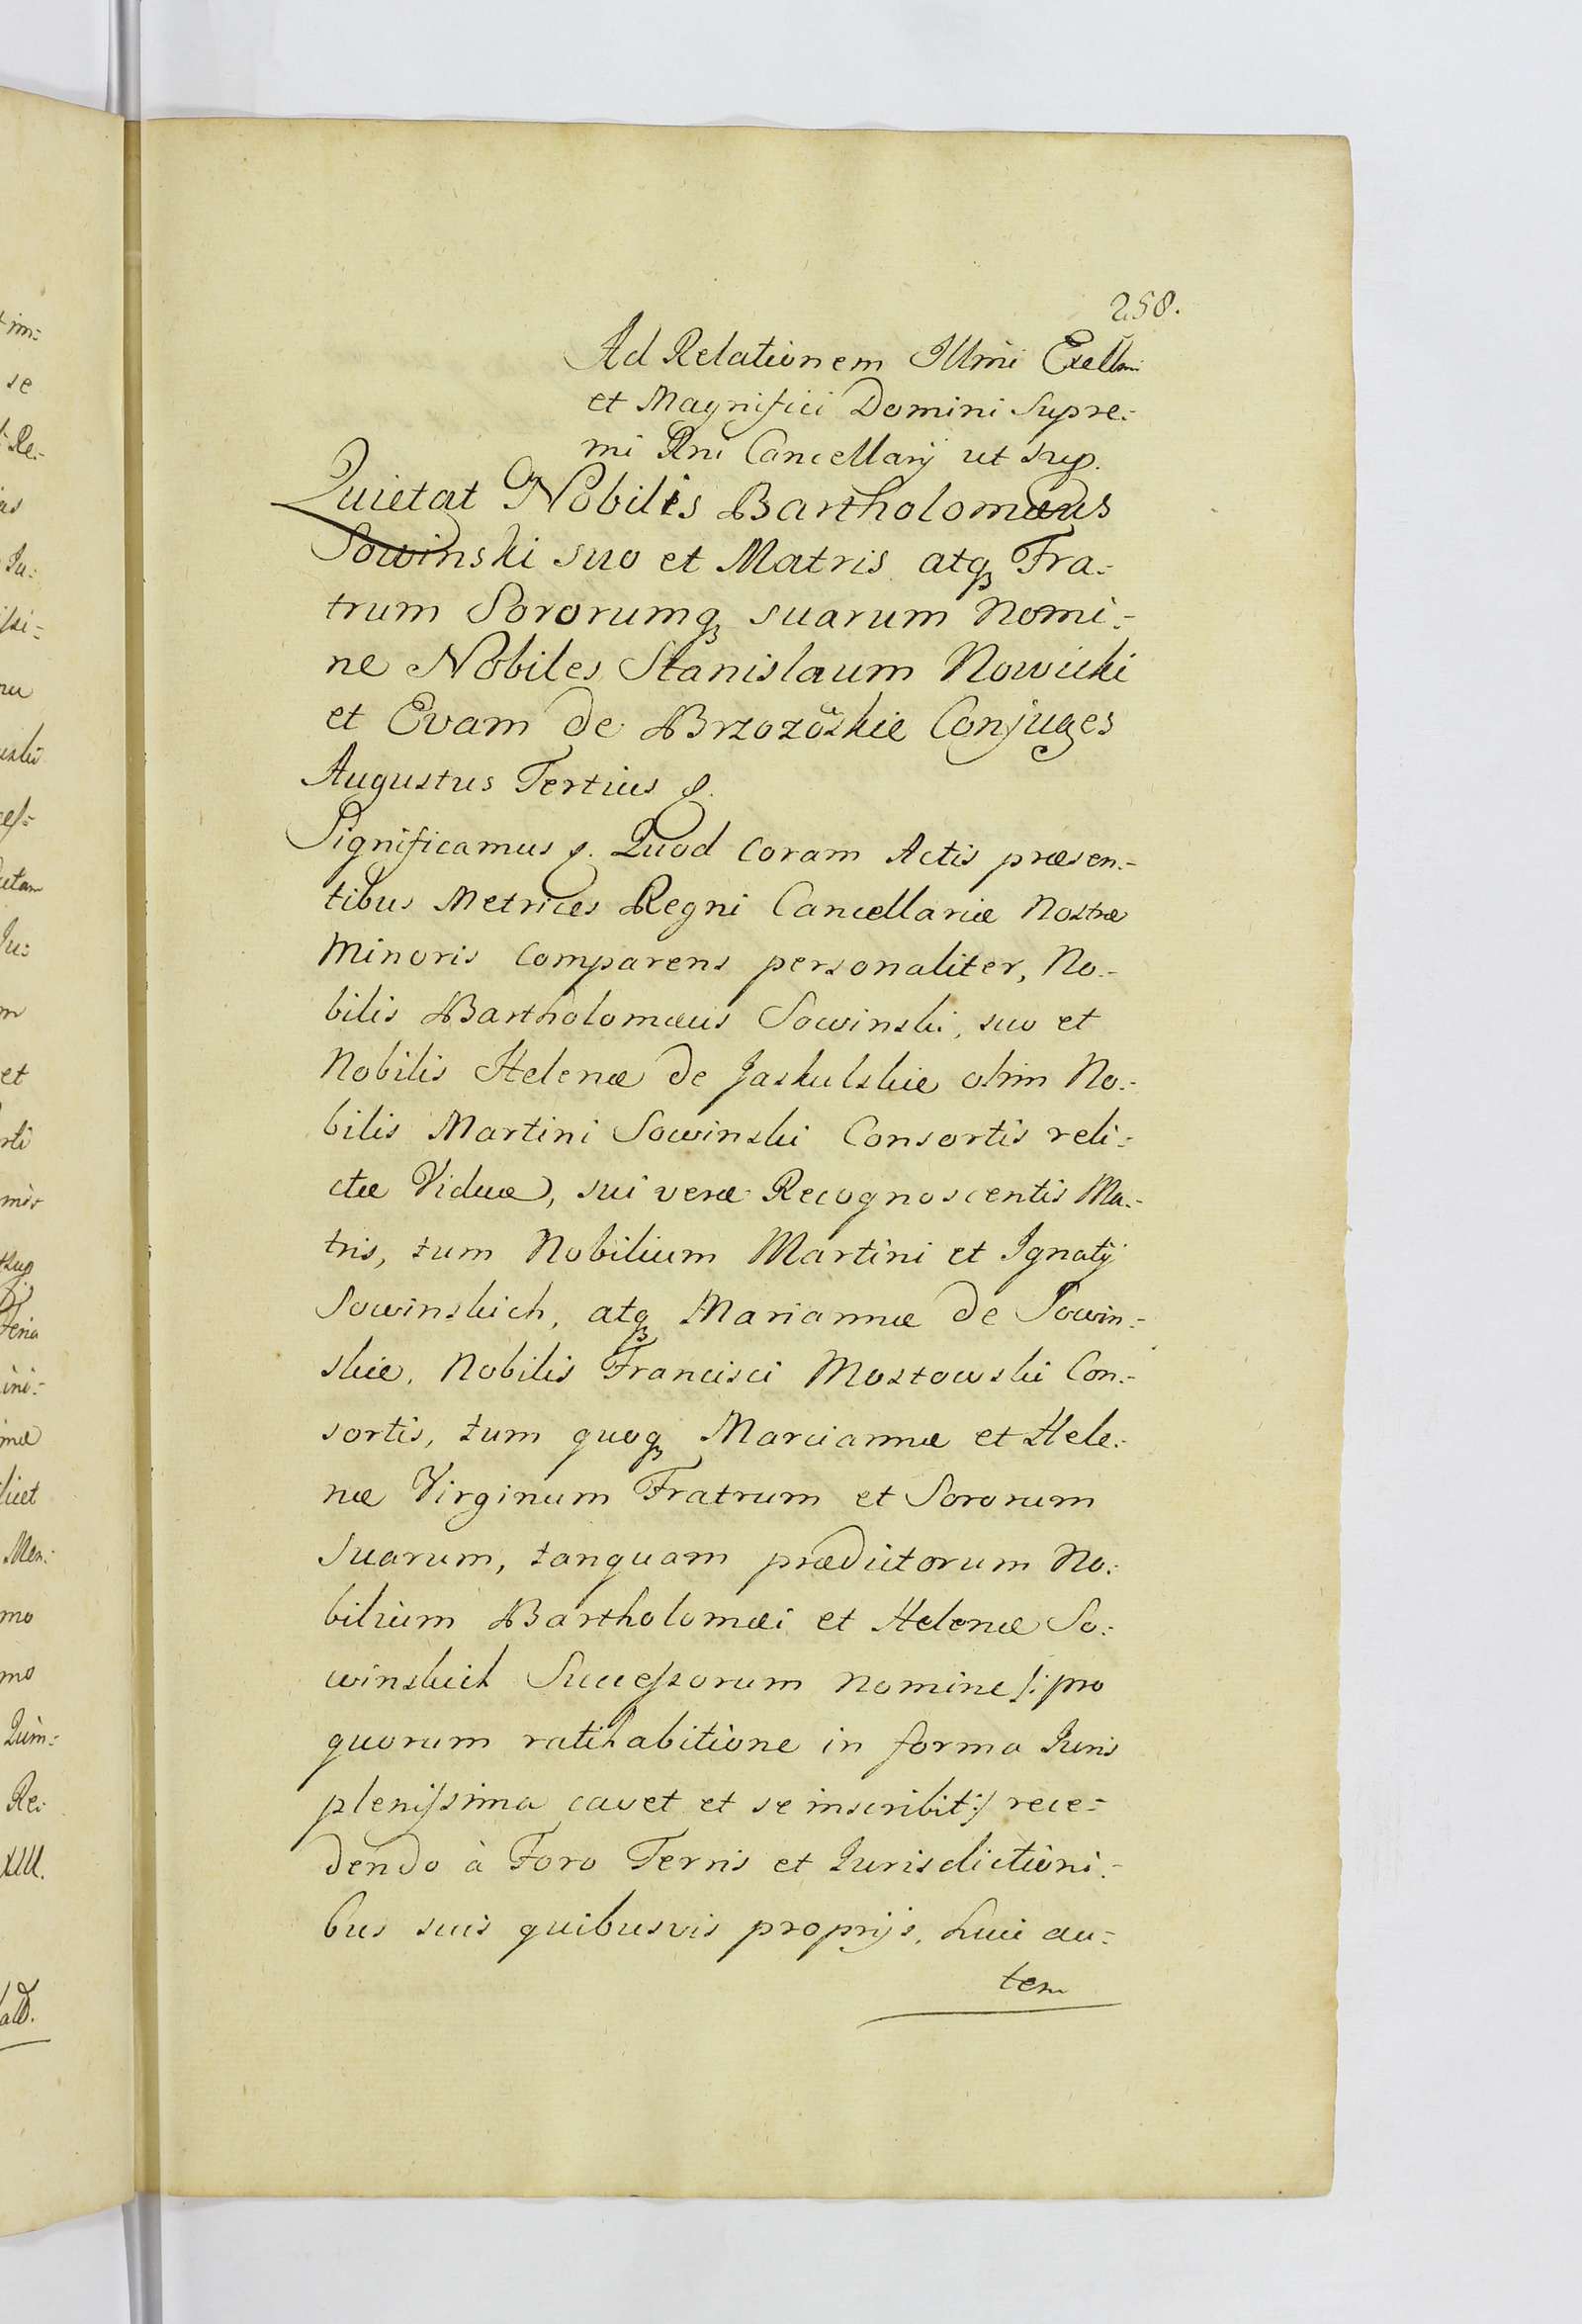 im:
se
Re:
as
Ju:
nu
utam
Ju:
m
et
rti
mo
mo
Quin:
Re:
XIII.
258.
Ad Relationem Illmi Exellmi
et Magnifici Domini Supre:
mi Rni Cancellarij ut sup.
Quietat Nobilis Bartholomæus
Sowinski suo et Matris atq Fra:
trum Sororumq suarum Nomi:
ne Nobiles Stanislaum Nowicki
et Evam de Brzozoskie Conjuges
Augustus Tertius
Significamus Quod coram Actis præsen:
tibus Metrices Regni Cancellariæ Nostræ
Minoris comparens personaliter, No:
bilis Bartholomæus Sowinski, suo et
Nobilis Helenæ de Jaskulskie olim No:
bilis Martini Sowinski Consortis reli:
ctæ Viduæ, sui veræ Recognoscentis Ma:
tris, tum Nobilium Martini et Ignatij
Sowinskich, atq Mariannæ de Sowin:
skie, Nobilis Francisci Mostowski Con:
sortis, tum quoq Marciannæ et Hele:
næ Virginum Fratrum et Sororum
suarum, tanquam prædictorum No:
bilium Bartholomæi et Helenæ So:
winskich Successorum nomine /: pro
quorum ratihabitione in forma Juris
plenissima cavet et se inscribit :/ rece:
dendo à Foro Terris et Jurisdictioni:
bus suis quibusvis proprijs, huic au:
tem